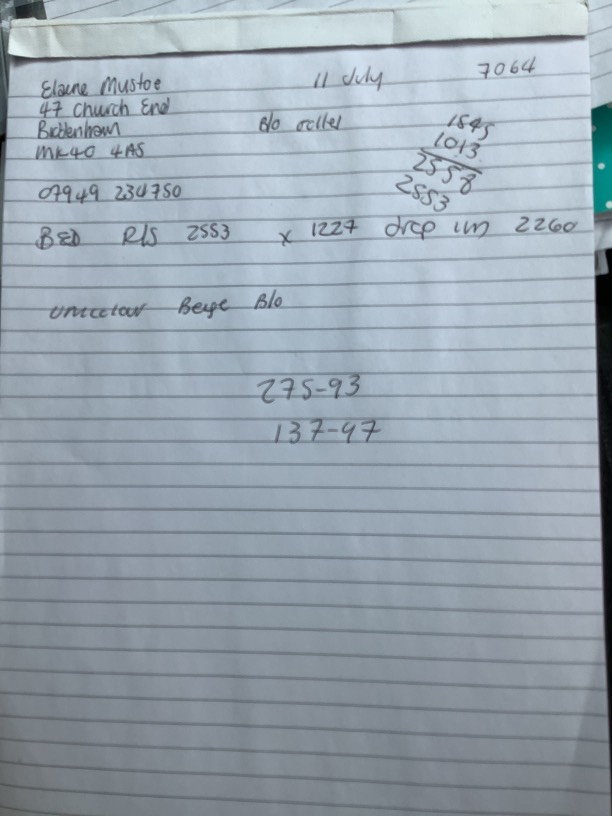 Elaine Mustoe 11 July 7064
47 Church End
Biddenham B/o roller 1545
MK40 4AS 1013
2558
07949 234750 2553
BED R/S 2553 x 1227 drop um 2260
unicolour Beige B/o
275-93
137-97